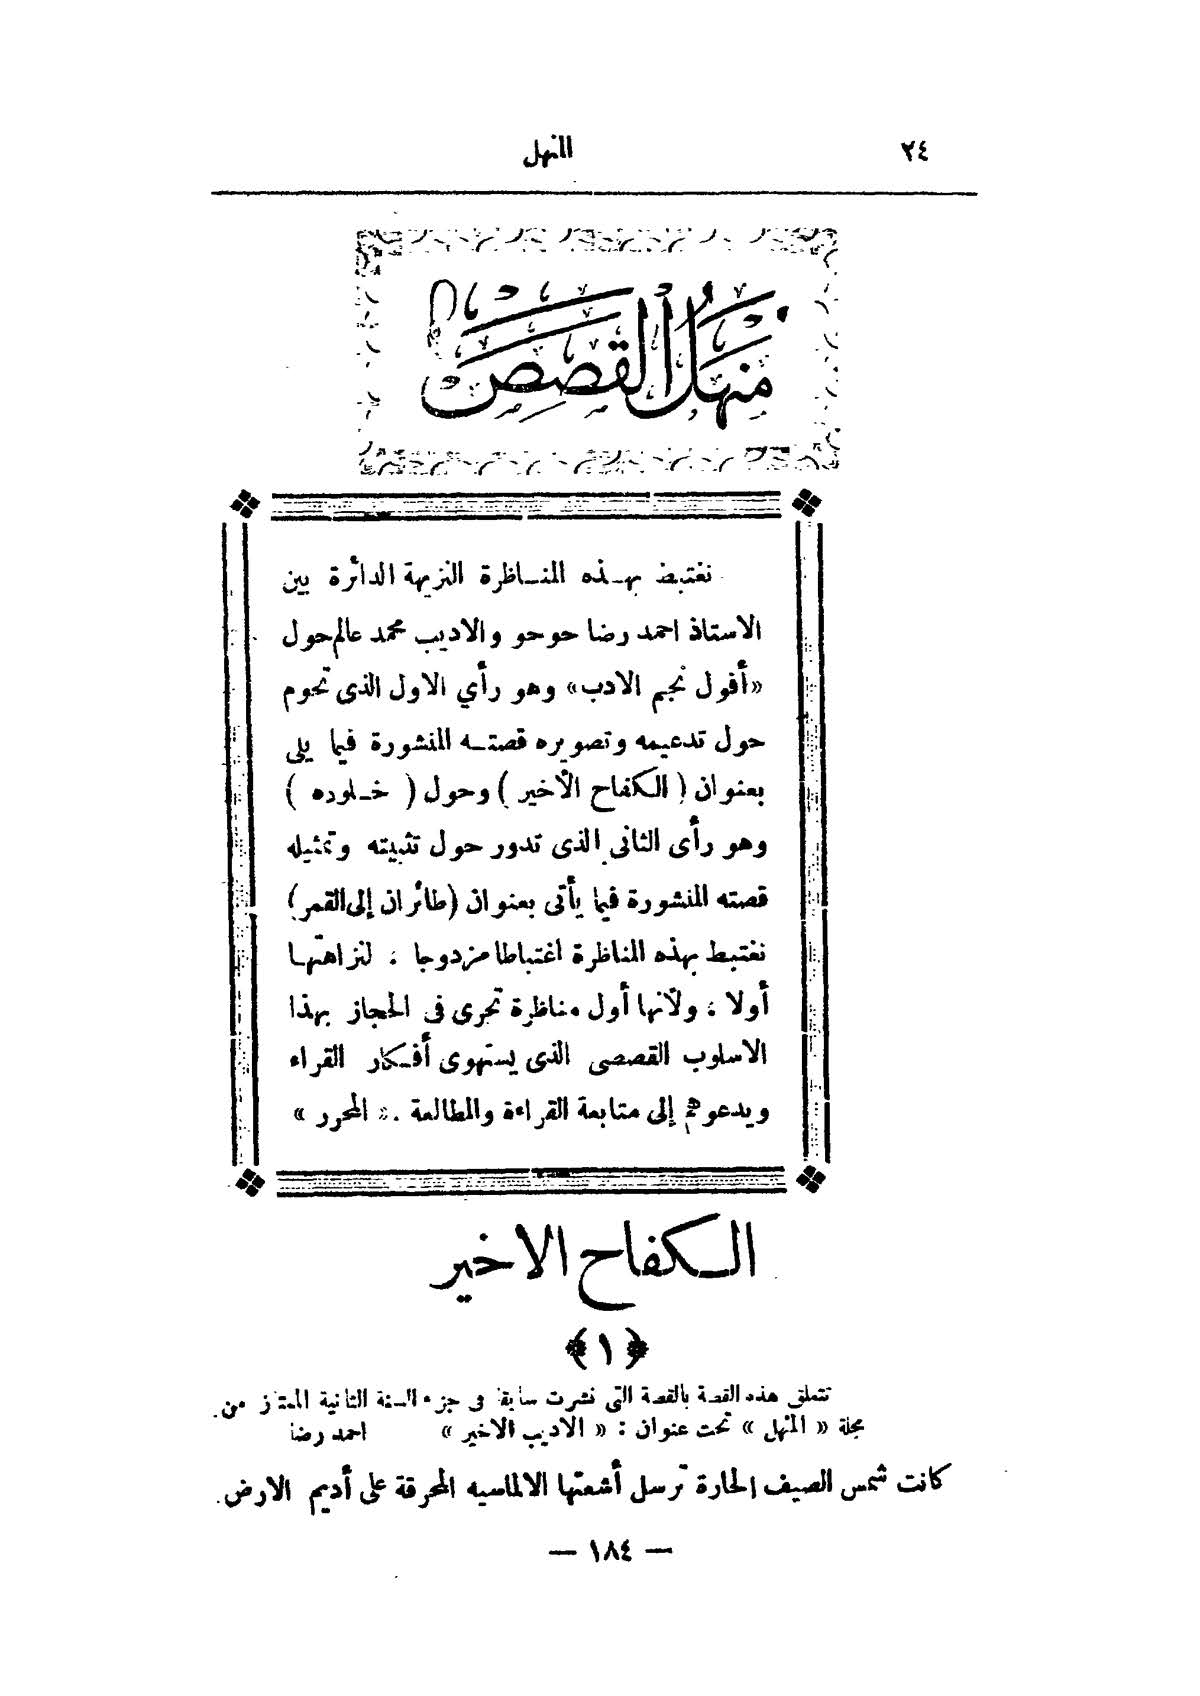 ٢٤
المنهل
منهل القصص
نغتبط بهذه المناظرة النزيهة الدائرة بين
الاستاذ احمد رضا حوحو والاديب محمد عالم حول
«أفول نجم الادب» وهو رأي الاول الذى تحوم
حول تدعيمه وتصويره قصته المنشورة فيما يلى
بعنوان (الكفاح الأخير) وحول (خلوده)
وهو رأى الثانى الذى تدور حول تثبيته وتمثيله
قصته المنشورة فيما يأتى بعنوان (طائران إلى القمر)
نغتبط بهذه المناظرة اغتباطا مزدوجا ، لنزاهتها
أولا ، ولأنها أول مناظرة تجرى فى الحجاز بهذا
الاسلوب القصصى الذى يستهوى أفكار القراء
ويدعوهم إلى متابعة القراءة والمطالعة . « المحرر »
الكفاح الاخير
﴿١﴾
تتعلق هذه القصة بالقصة التى نشرت سابقا فى جزء السنة الثانية الممتاز من
مجلة « المنهل » تحت عنوان : « الاديب الاخير » احمد رضا
كانت شمس الصيف الحارة ترسل أشعتها الالماسيه المحرقة على أديم الارض .
— ١٨٤ —